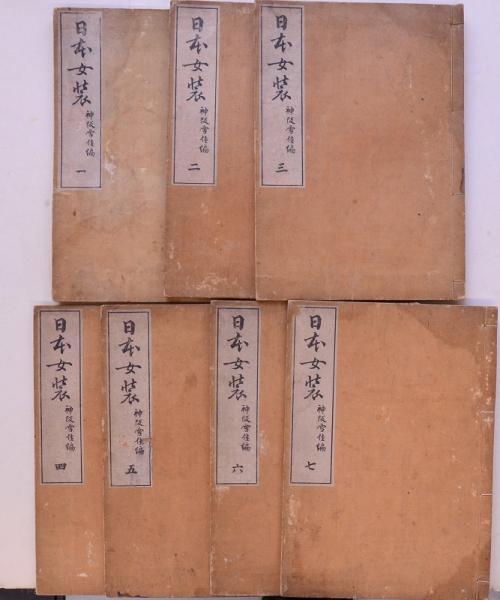 日本女装
神坂雪佳編
一
日本女装
神坂雪佳編
二
日本女装
神坂雪佳編
三
日本女装
神坂雪佳編
四
日本女装
神坂雪佳編
五
日本女装
神坂雪佳編
六
日本女装
神坂雪佳編
七